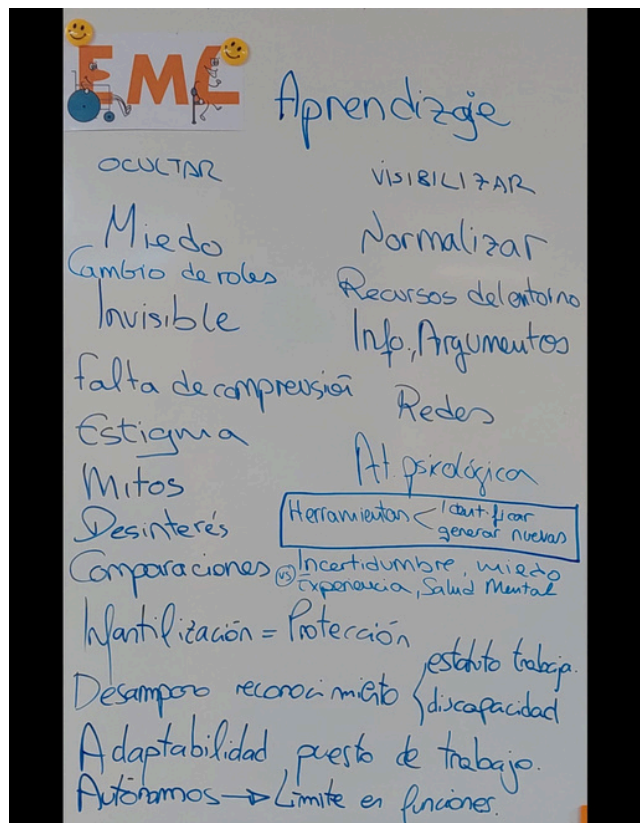 EMC
Aprendizaje
OCULTAR
Miedo
Cambio de roles
Invisible
falta de comprensión
Estigma
Mitos
Desinterés
Comparaciones
VISIBILIZAR
Normalizar
Recursos del entorno
Info., Argumentos
Redes
At. psicológica
Herramientas < Identificar
generar nuevas
vs Incertidumbre, miedo
Experiencia, Salud Mental
Infantilización = Protección
Desamparo reconocimiento { estatuto trabaja.
discapacidad
Adaptabilidad puesto de trabajo.
Autónomos → Límite en funciones.